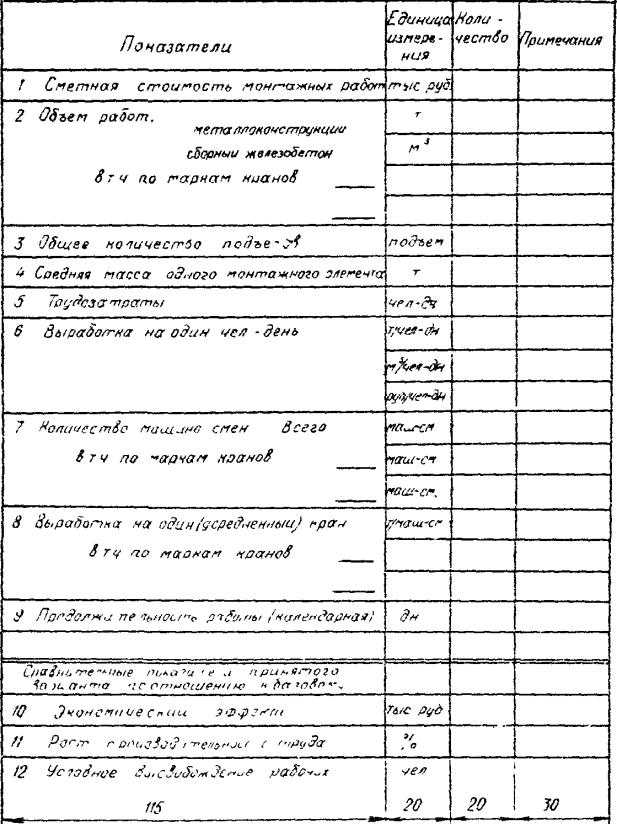 Показатели Единица измере- ния Коли - чество Примечания
1 Сметная стоимость монтажных работ тыс руб.
2 Объем работ. т
металлоконструкции
сборный железобетон м³
в т ч по маркам кранов
3 Общее количество подъем
4 Средняя масса одного монтажного элемента т
5 Трудозатраты чел-дн
6 Выработка на один чел - день т/чел-дн
м³/чел-дн
руб/чел-дн
7 Количество машино смен Всего маш-см
в т ч по маркам кранов маш-см
маш-см.
8 Выработка на один (усредненный) кран т/маш-см
в т ч по маркам кранов
9 Продолжительность работы (календарная) дн
Сравнительные показатели принятого
варианта по отношению к базовому
10 Экономический эффект тыс руб
11 Рост производительности труда %
12 Условное высвобождение рабочих чел
115 20 20 30